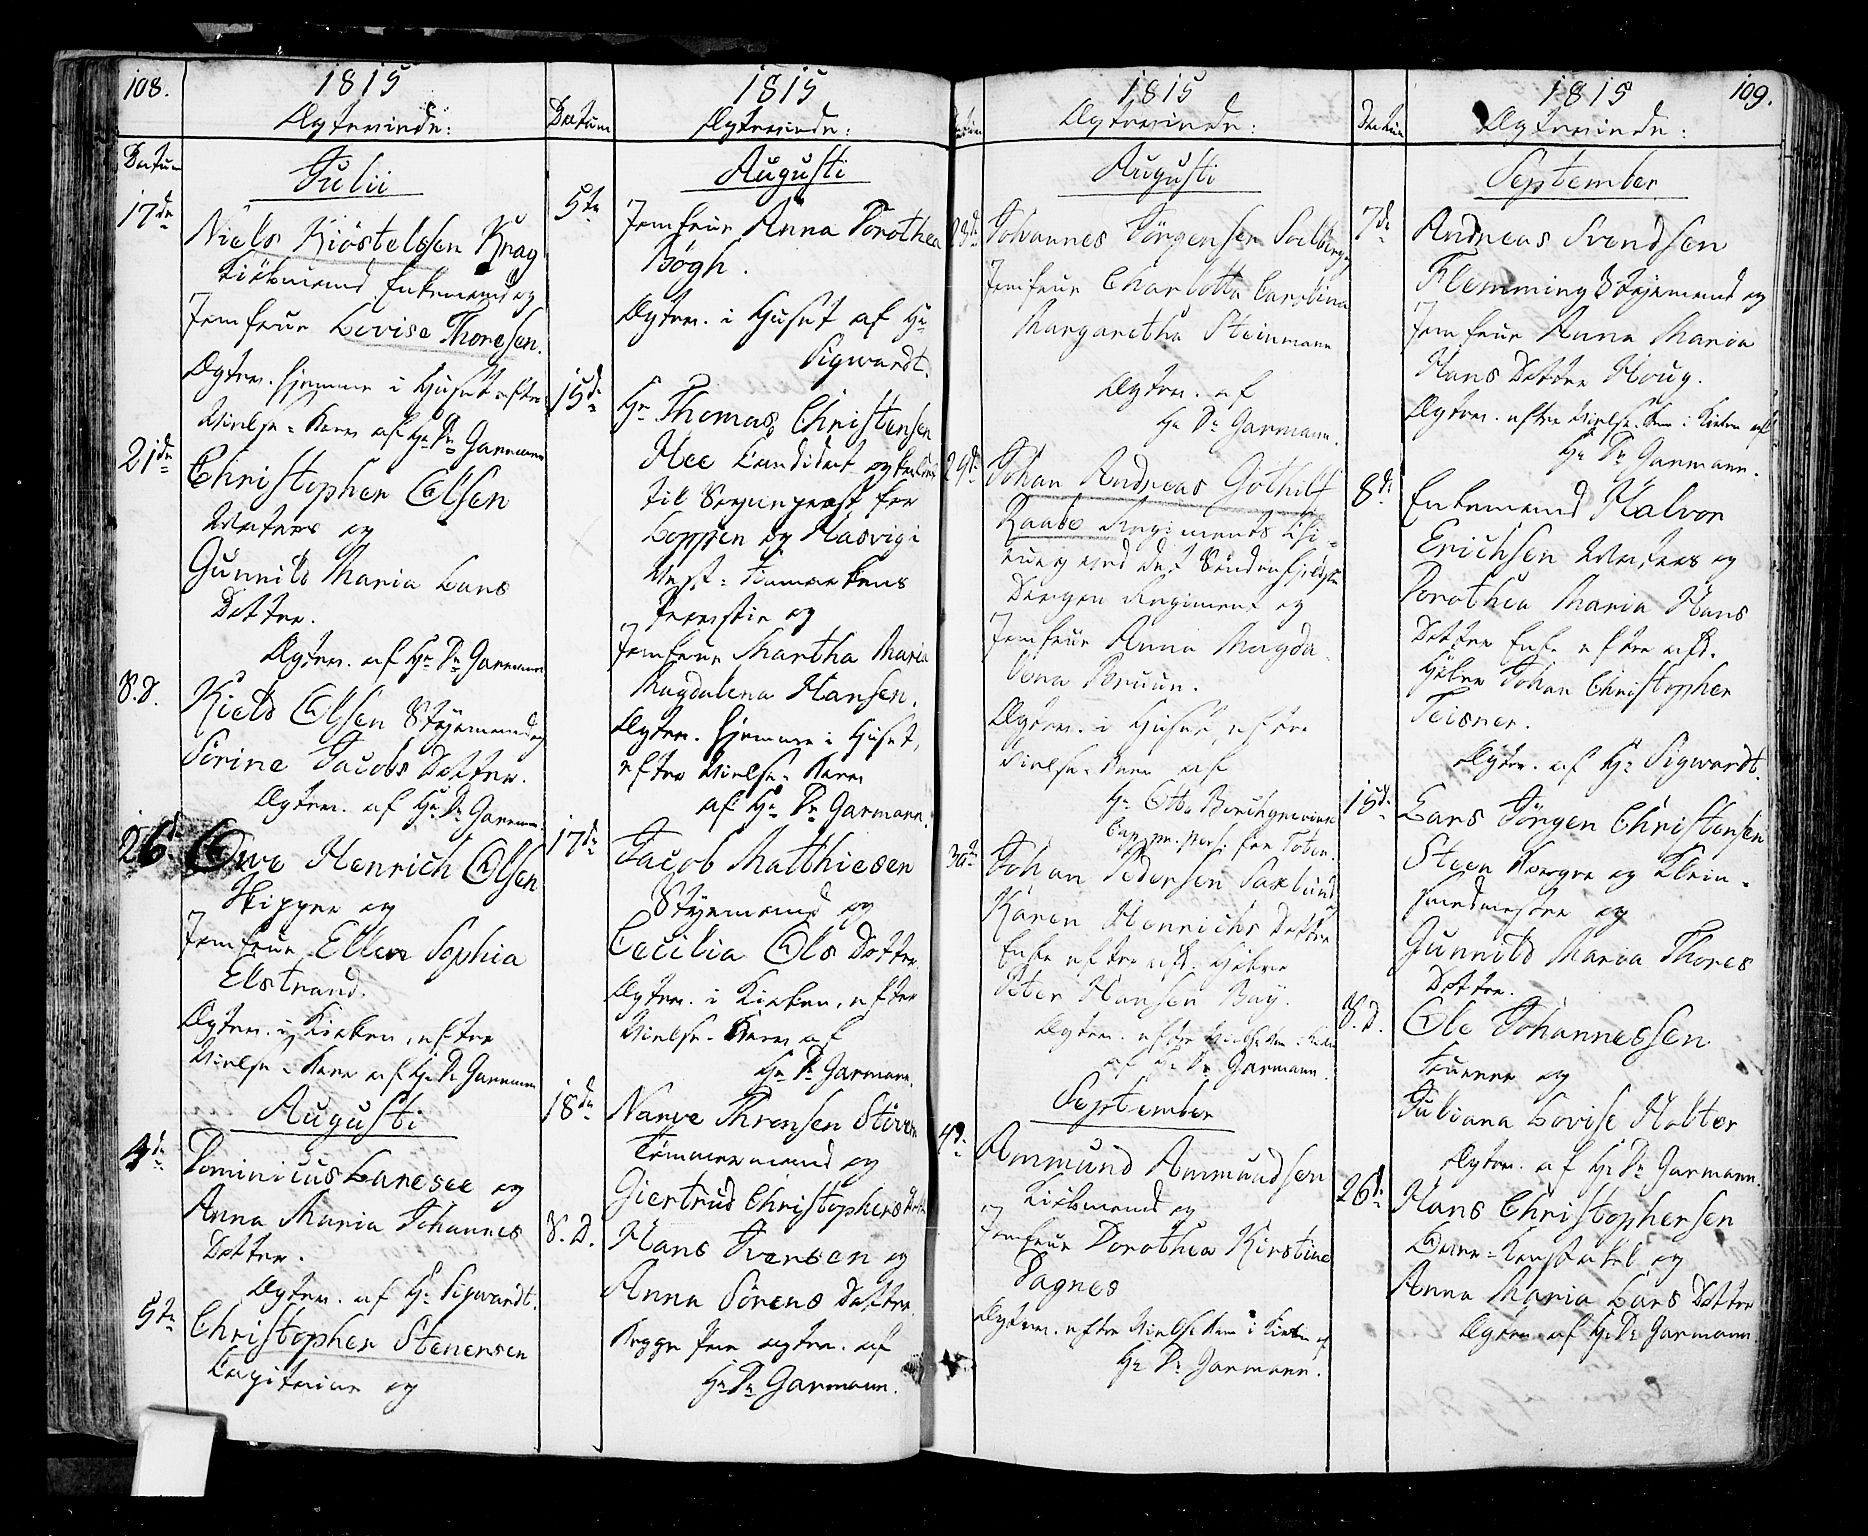 108.
1815
Ægteviede:
Datum
Julii
17de
Niels Kiöstelssen Krag
Kiöbmand Enkemand og
Jomfrue Lovise Thoresen.
Ægtev. hjemme i Huset efter
Vielse-Brev af Hr Dr Garmann
21de
Christopher Olsen
Matros og
Gunnild Maria Lars
Datter.
Ægtev. af Hr Dr Garmann
S.D.
Kield Olsen Styrmand og
Sörine Jacobs Datter.
Ægtev. af Hr Dr Garmann.
26de
Owe Henrich Olsen
Skipper og
Jomfrue Ellen Sophia
Elstrand.
Ægtev. i Kirken, efter
Vielse-Brev af Hr Dr Garmann
Augusti
4de
Dominicus Laresee og
Anna Maria Johannes
Datter.
Ægtev. af Hr Sigwardt.
5te
Christopher Stenersen
og
1815
Datum
Ægteviede:
Augusti
5te
Jomfrue Anna Dorothea
Bögh.
Ægtev. i Huset af Hr
Sigwardt.
15de
Hr Thomas Christensen
Hee Candidat og
til Sognepræst for
Loppen og Hasvig i
Vest-Finmarkens
Provstie og
Jomfrue Martha Maria
Magdalena Hansen.
Ægtev. hjemme i Huset,
efter Vielse-Brev
af Hr Dr Garmann.
17de
Jacob Matthiesen
Styrmand og
Cecilia Ols Datter.
Ægtev. i Kirken, efter
Vielse-Brev af
Hr Dr Garmann.
18de
Narve Thronsen
Tömmermand og
Giertrud Christophers Datter
S.D.
Hans Iversen og
Anna Sörens Datter.
Begge Par ægtev. af
Hr Dr Garmann.
1815
Ægteviede:
Augusti
Johannes Jörgensen Solberg og
Jomfrue Charlotta Carolina
Margaretha Steinmann
Ægtev. af
Hr Dr Garmann.
29de
Johan Andreas Gothilf
Raabe Regiments Chi-
rurg ved det Söndenfjeldske
Dragon Regiment og
Jomfrue Anna Magda-
lena Bruun.
Ægtev. i Huset, efter
Vielse-Brev af
Hr Otto Borchgrevink
for Toten.
30te
Johan Pedersen Saxlund og
Karen Henrichs Datter
Enke efter afd. Hölcer
Peter Hansen Bay.
Ægtev. efter Vielse Brev i Kirken
af Hr Dr Garmann.
September
4de
Ammund Ammundsen
Kiöbmand og
Jomfrue Dorothea Kirstine
Pagnes
Ægtev. efter Vielse Brev i Kirken af
Hr Dr Garmann.
1815
109.
Datum
Ægteviede:
September
7de
Andreas Svendsen
Flemming Styrmand og
Jomfrue Anna Maria
Hans Datter Houg.
Ægtev. efter Vielse-Brev i Kirken af
Hr Dr Garmann.
8de
Enkemand Halvor
Erichsen Matros og
Dorothea Maria Hans
Datter Enke efter afd.
Johan Christopher
Teisner.
Ægtev. af Hr Sigwardt.
15de
Lars Jörgen Christensen
Steen Borger og Klein-
smedmester og
Gunnild Maria Thores
Datter.
S.D.
Ole Johannessen
Tourner og
Juliana Lovise Holter
Ægtev. af Hr Dr Garmann.
26de
Hans Christophersen
Over-Konstabel og
Anna Maria Lars Datter
Ægtev. af Hr Dr Garmann